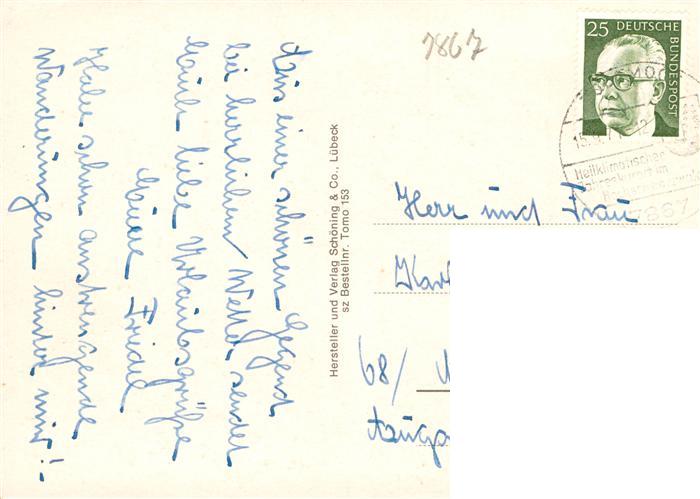 Aus einer schönen Gegend
bei herrlichem Wetter sendet
Euch liebe Urlaubsgrüße
Eure Friedel
Habe schon anstrengende
Wanderungen hinter mir!
Hersteller und Verlag Schöning & Co., Lübeck
sz Bestellnr. Tomo 153
7867
25 DEUTSCHE BUNDESPOST
Heilklimatischer
Herr und Frau
68/